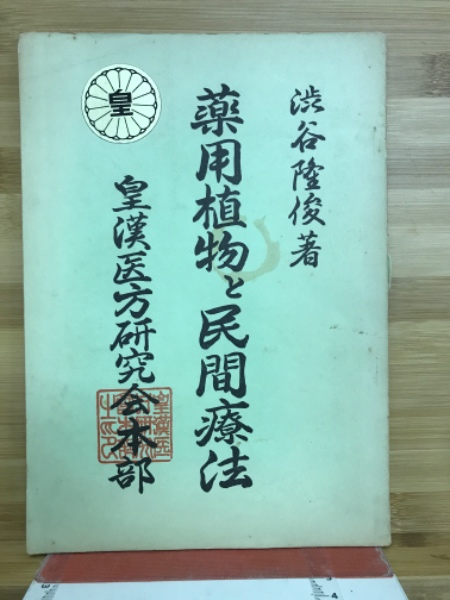 渋谷隆俊著
薬用植物と民間療法
皇
皇漢医方研究会本部